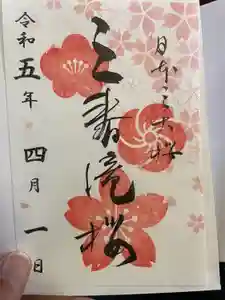 日本三大桜
三春滝桜
令和五年
四月一日